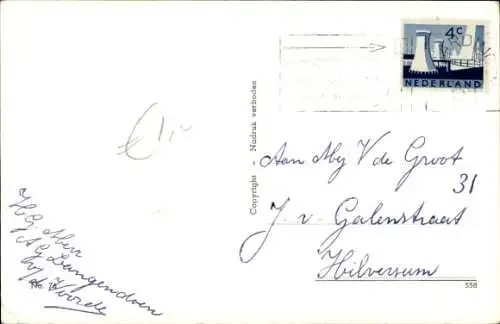 4c
NEDERLAND
Copyright - Nadruk verboden
Aan Mej V de Groot
31
J. v. Galenstraat
Hilversum
558
H.G. Mevr
A G Langendoen
v/d Voorde
No.